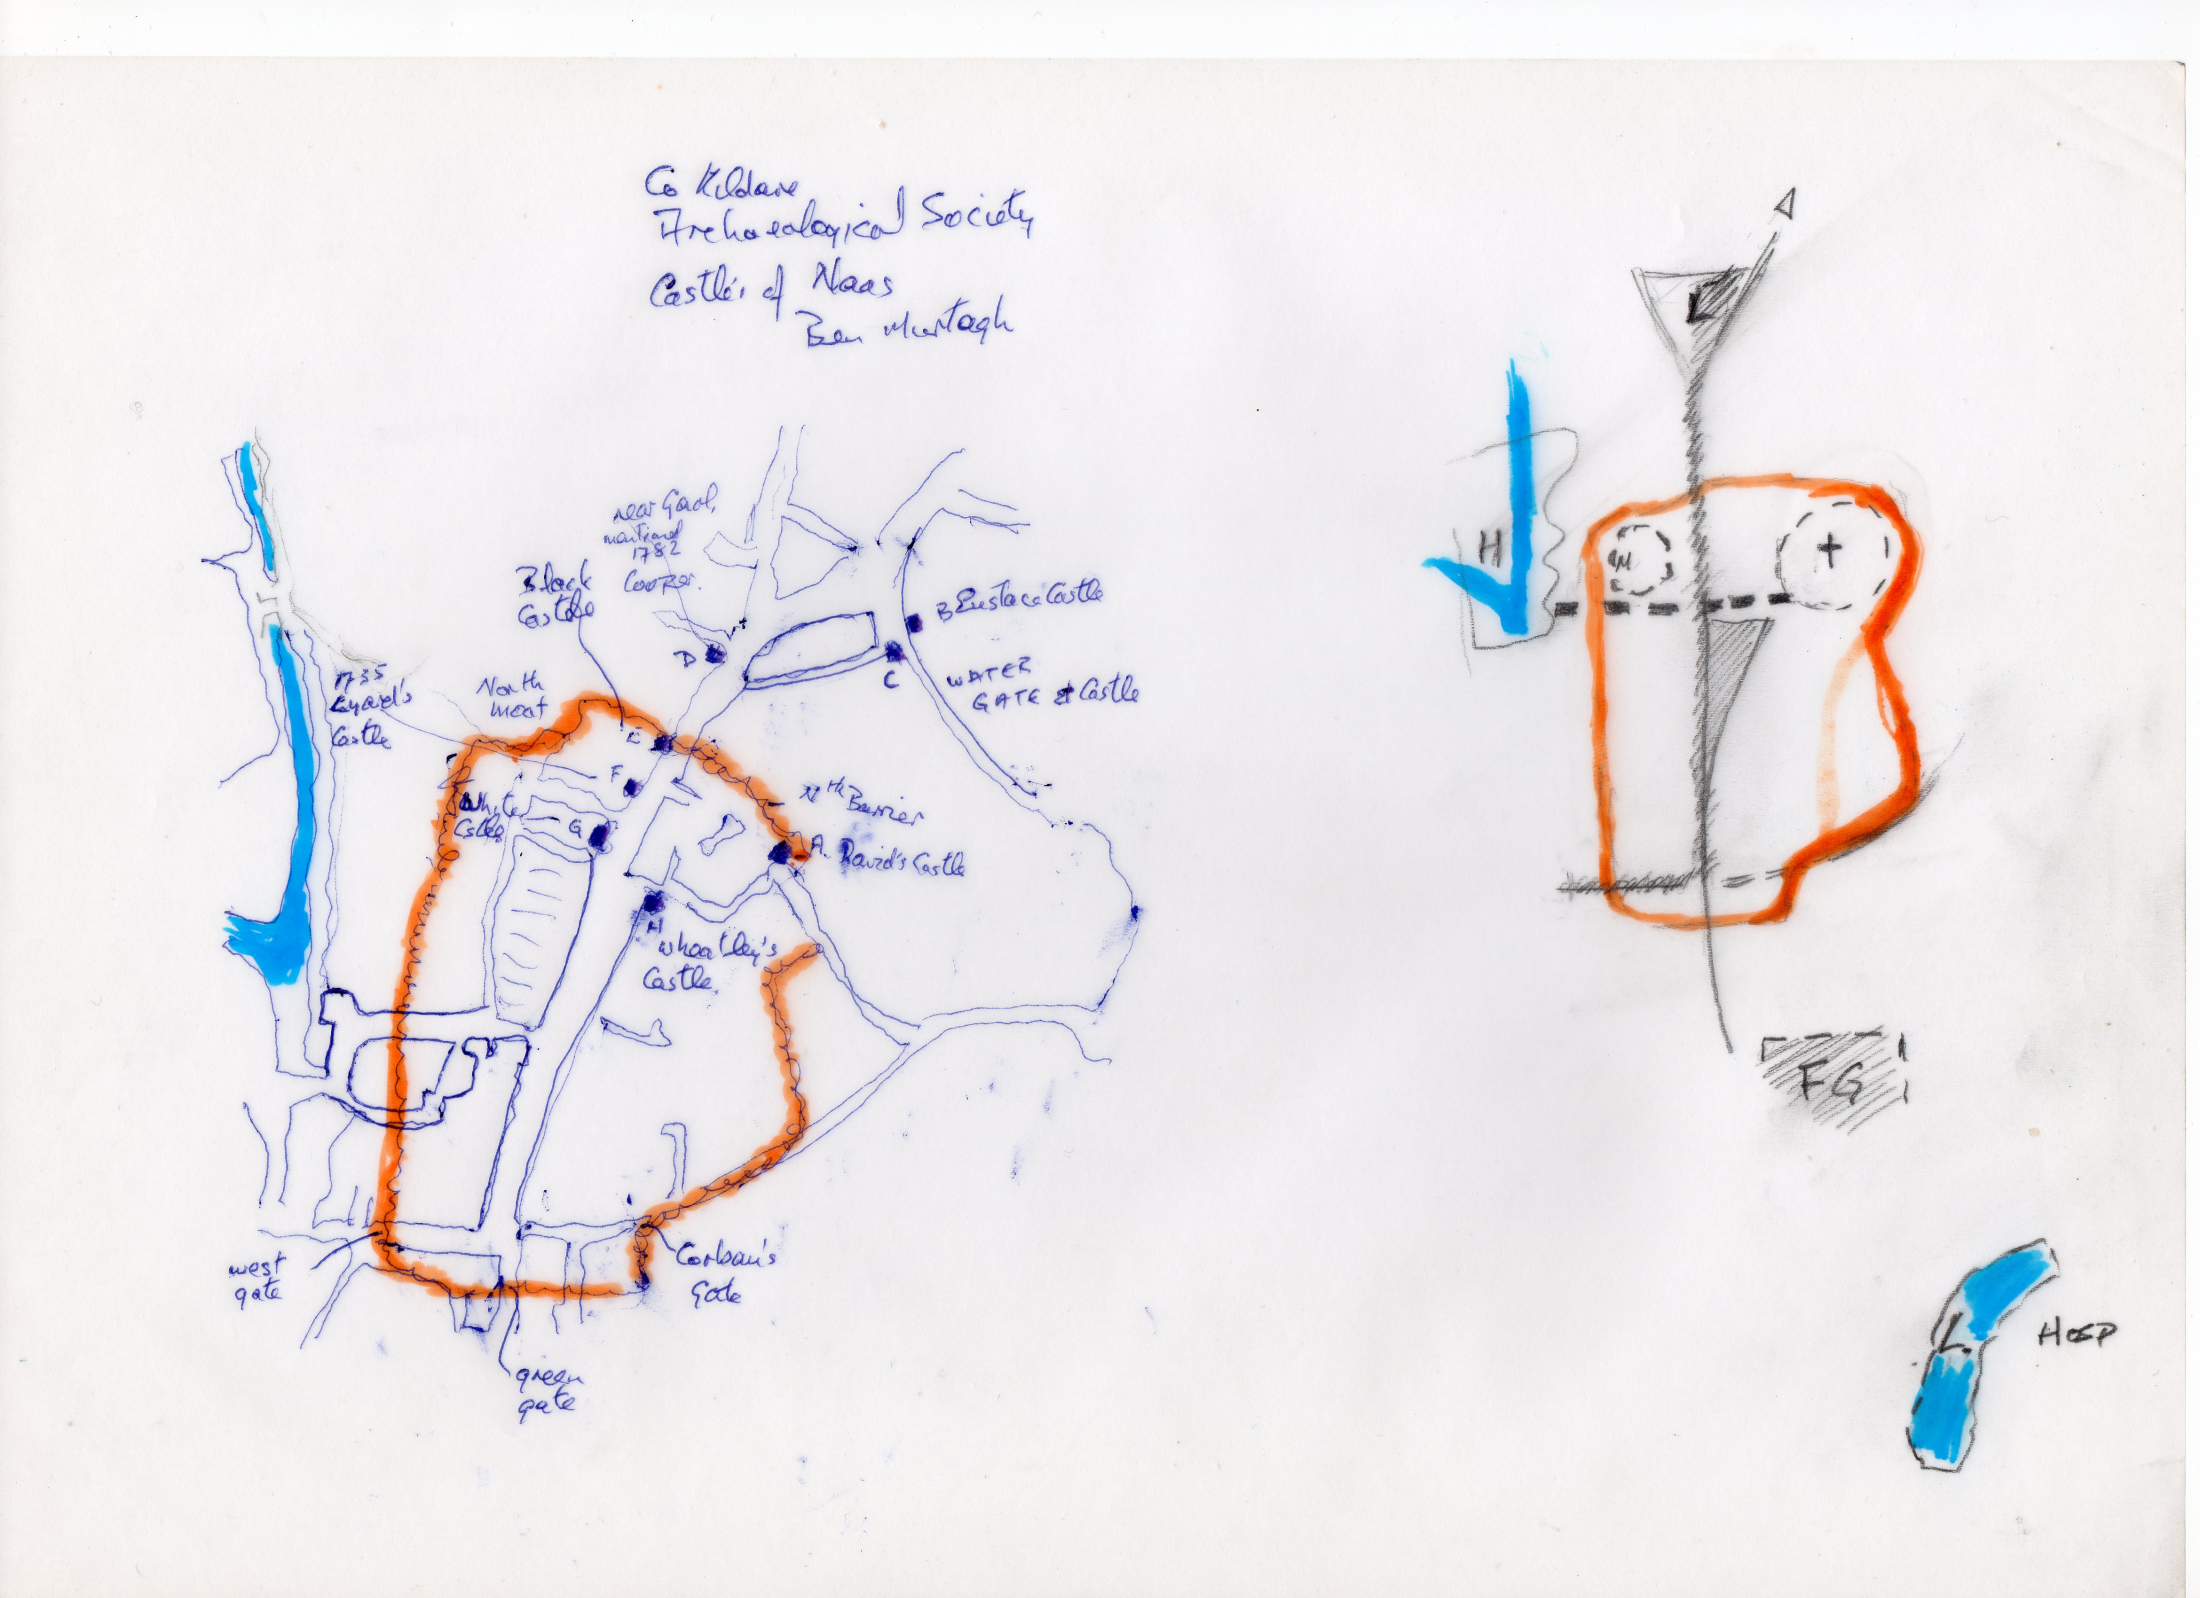 Co Kildare
Archaeological Society
Castles of Naas
Ben Murtagh
near Gaol,
mentioned
1782
Cooper.
Black
Castle
B Eustace Castle
D
C
WATER
GATE & Castle
1735
Eyard's
Castle
North
moat
E
F
Nth Barrier
White
Cstle
G
A. David's Castle
H
Wheatley's
Castle.
west
gate
Corban's
Gate
green
gate
H
M
+
FG
L
HOSP